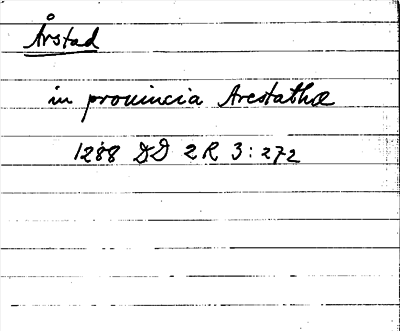 Årstad
in prouincia Arestathæ
1288 DD 2R 3:272